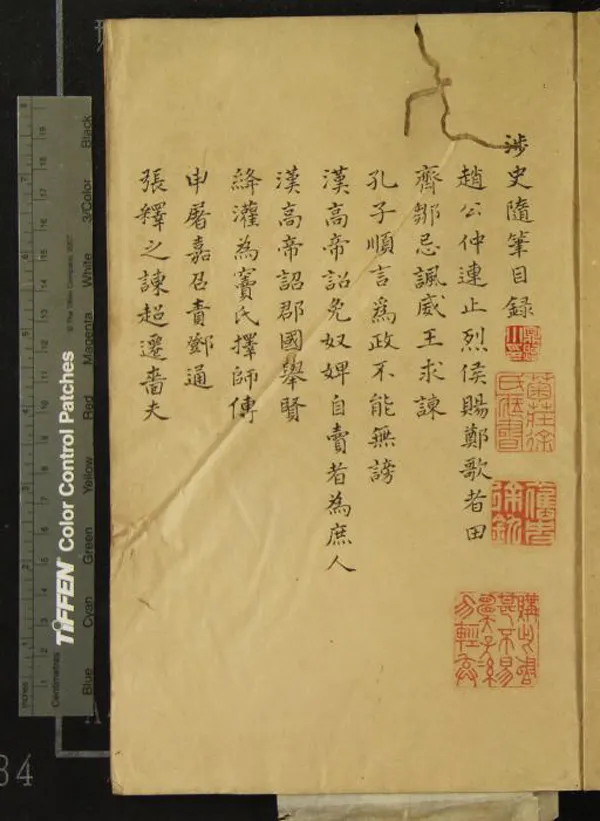 涉史隨筆目錄
趙公仲連止烈侯賜鄭歌者田
齊鄒忌諷威王求諫
孔子順言為政不能無謗
漢高帝詔免奴婢自賣者為庶人
漢高帝詔郡國舉賢
絳灌為竇氏擇師傅
申屠嘉召責鄧通
張釋之諫超遷嗇夫
菌莊徐氏藏書
購此書甚不易願子孫勿輕棄
TIFFEN Color Control Patches
Blue Cyan Green Yellow Red Magenta White 3/Color Black
Inches
Centimetres
34